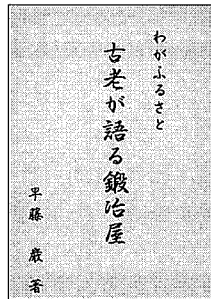 わがふるさと
古老が語る鍛冶屋
早藤 巌 著